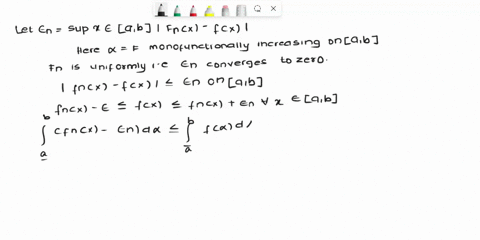 Let εn = sup x ∈ [a,b] | Fn(x) - f(x) |
Here α = F monofunctionally increasing on [a,b]
Fn is uniformly i.e εn converges to zero.
| fn(x) - f(x) | ≤ εn on [a,b]
fn(x) - ε ≤ f(x) ≤ fn(x) + εn ∀ x ∈ [a,b]
∫_a^b (fn(x) - εn) dα ≤ ∫_a^b f(α) d